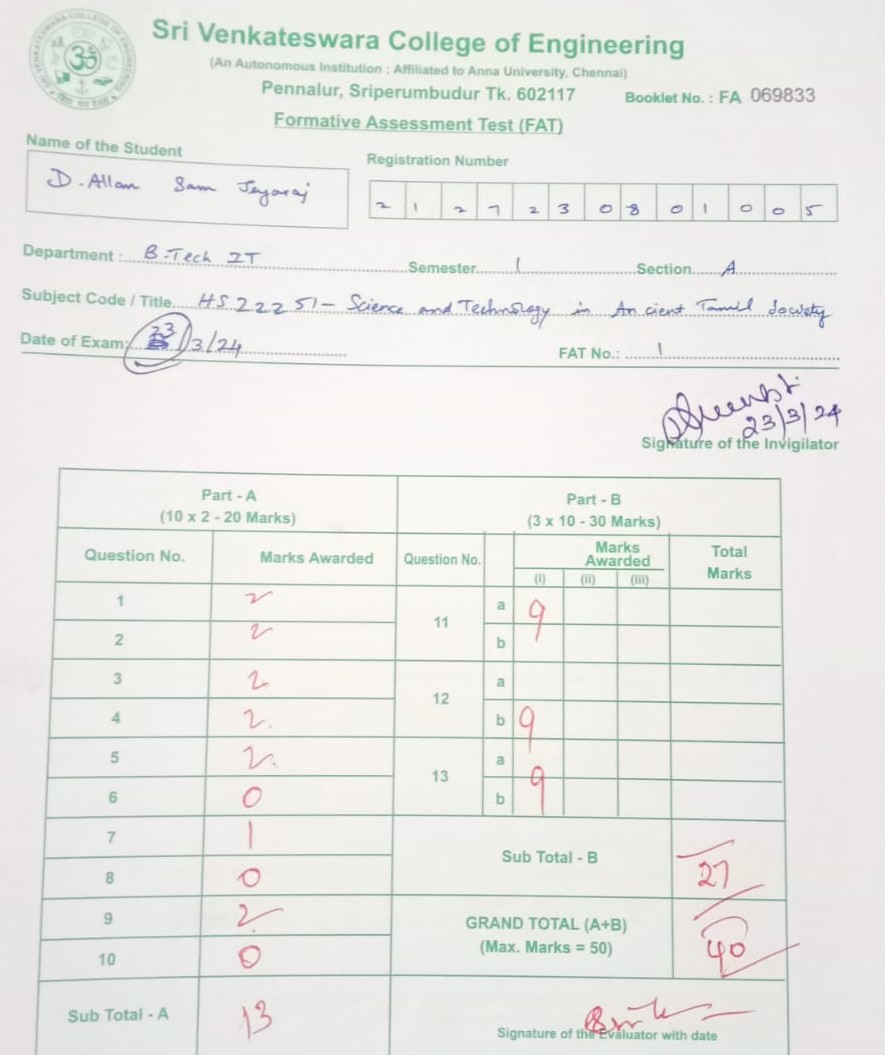 Sri Venkateswara College of Engineering
(An Autonomous Institution ; Affiliated to Anna University, Chennai)
Pennalur, Sriperumbudur Tk. 602117
Booklet No. : FA 069833
Formative Assessment Test (FAT)
Name of the Student
D. Allan Sam Jeyaraj
Registration Number
2 1 2 7 2 3 0 8 0 1 0 0 5
Department : B.Tech IT Semester 1 Section A
Subject Code / Title HS22251 - Science and Technology in Ancient Tamil Society
Date of Exam: 23/3/24 FAT No.: 1
23/3/24
Signature of the Invigilator
Part - A Part - B
(10 x 2 - 20 Marks) (3 x 10 - 30 Marks)
Question No. Marks Awarded Question No. Marks Awarded Total Marks
(i) (ii) (iii)
1 2 11 a 9
2 2 b
3 2 12 a
4 2. b 9
5 2. 13 a 9
6 0 b
7 1 Sub Total - B 27
8 0
9 2. GRAND TOTAL (A+B)
(Max. Marks = 50) 40
10 0
Sub Total - A 13
Signature of the Evaluator with date